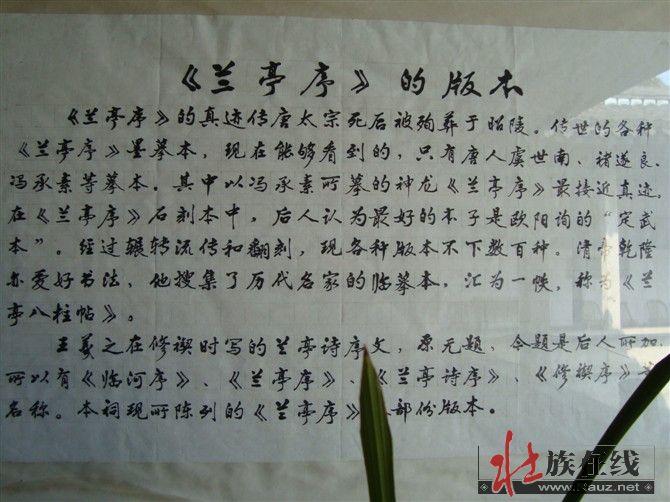 《兰亭序》的版本
《兰亭序》的真迹传唐太宗死后被殉葬于昭陵。传世的各种
《兰亭序》墨摹本，现在能够看到的，只有唐人虞世南、褚遂良、
冯承素等摹本。其中以冯承素所摹的神龙《兰亭序》最接近真迹，
在《兰亭序》石刻本中，后人认为最好的本子是欧阳询的“定武
本”。经过辗转流传和翻刻，现各种版本不下数百种。清帝乾隆
亦爱好书法，他搜集了历代名家的临摹本，汇为一帙，称为《兰
亭八柱帖》。
王羲之在修禊时写的兰亭诗序文，原无题，今题是后人所加，
所以有《临河序》、《兰亭序》、《兰亭诗序》、《修禊序》
名称。本祠现所陈列的《兰亭序》部份版本。
壮族在线
www.Rauz.net